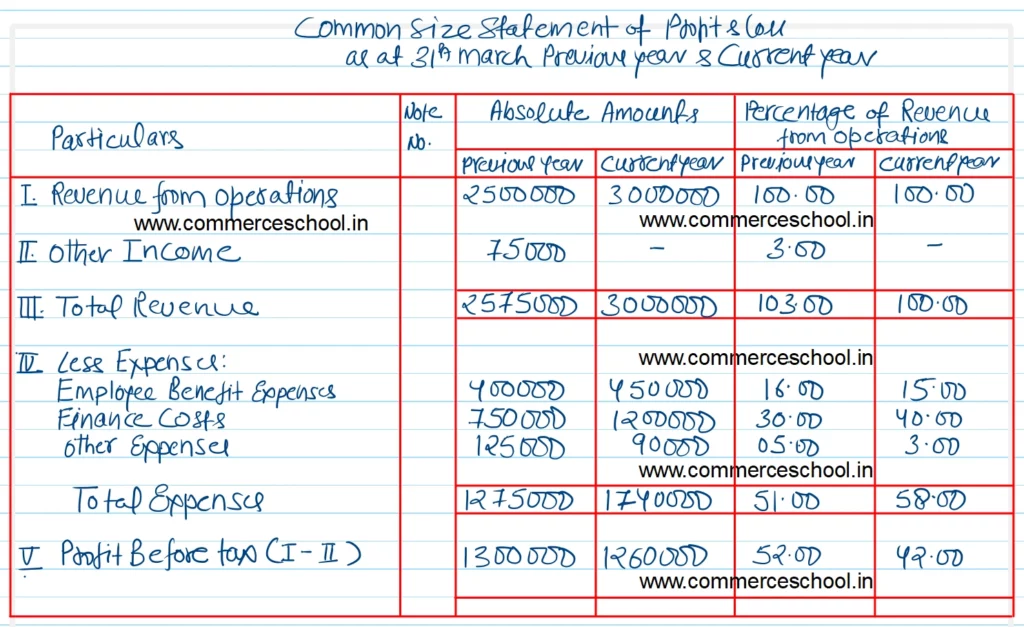 Common Size Statement of Profit & Loss
as at 31th March Previous year & Current year
Particulars Note No. Absolute Amounts Percentage of Revenue from operations
Previous year Current year Previous year Current year
I. Revenue from operations 2500000 3000000 100.00 100.00
www.commerceschool.in www.commerceschool.in
II. Other Income 75000 - 3.00 -
III. Total Revenue 2575000 3000000 103.00 100.00
IV Less Expenses: www.commerceschool.in
Employee Benefit Expenses 400000 450000 16.00 15.00
Finance Costs 750000 1200000 30.00 40.00
Other Expenses 125000 90000 05.00 3.00
www.commerceschool.in
Total Expenses 1275000 1740000 51.00 58.00
V Profit Before tax (I-II) 1300000 1260000 52.00 42.00
www.commerceschool.in